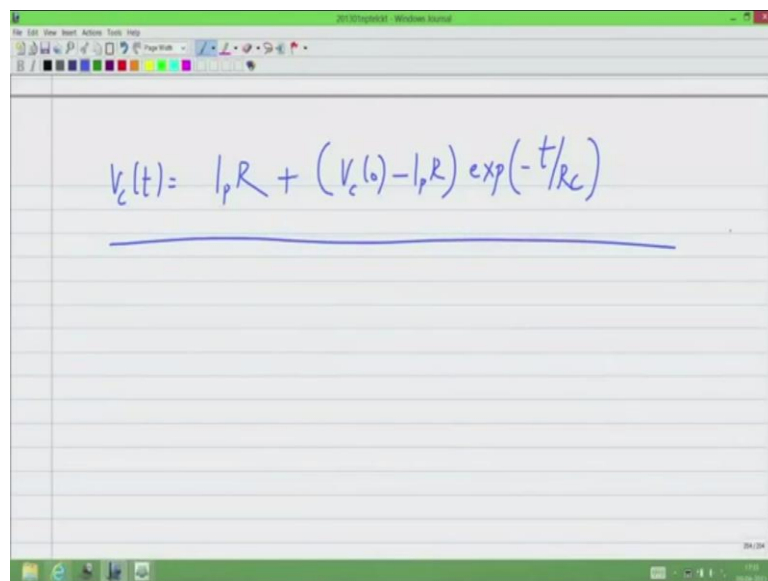 201301nptelckt - Windows Journal
File Edit View Insert Actions Tools Help
Page Width
B I
V_c(t) = I_pR + (V_c(0) - I_pR) exp(-t/RC)
204/204